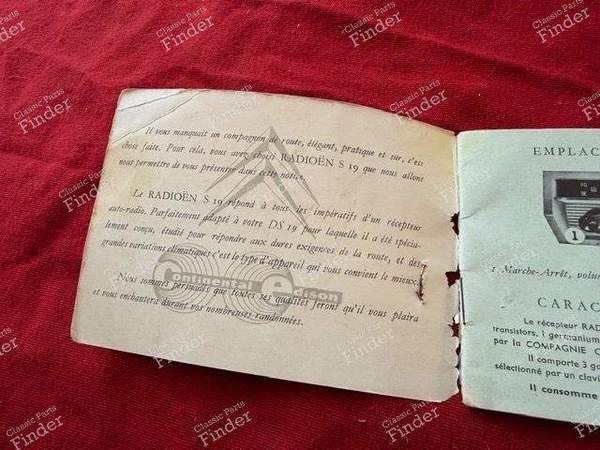 Il vous manquait un compagnon de route, élégant, pratique et sur, c'est
chose faite. Pour cela, vous avez choisi RADIOËN S 19 que nous allons
nous permettre de vous présenter dans cette notice.
Le RADIOËN S 19 répond à tous les impératifs d'un récepteur
auto-radio. Parfaitement adapté à votre DS 19 pour laquelle il a été spécia-
lement conçu, étudié pour répondre aux dures exigences de la route, et des
grandes variations climatiques c'est le type d'appareil qui vous convient le mieux.
Continental edison
Nous sommes persuadés que toutes ses qualités feront qu'il vous plaira
et vous enchantera durant vos nombreuses randonnées.
EMPLAC
1
1 Marche-Arrêt, volu
CARAC
Le récepteur RAD
transistors, 1 germanium
par la COMPAGNIE C
Il comporte 3 ga
sélectionné par un clavi
Il consomme
Classic Parts
Finder